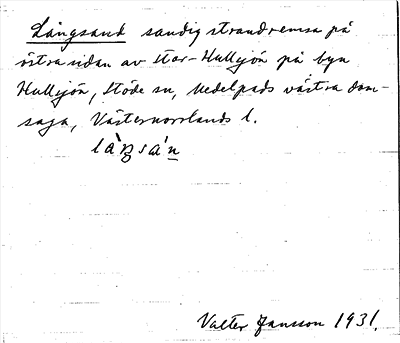 Långsand sandig strandremsa på
östra sidan av Stor-Hullsjön på byn
Hullsjön, Stöde sn, Medelpads västra dom-
saga, Västernorrlands l.
Valter Jansson 1931.